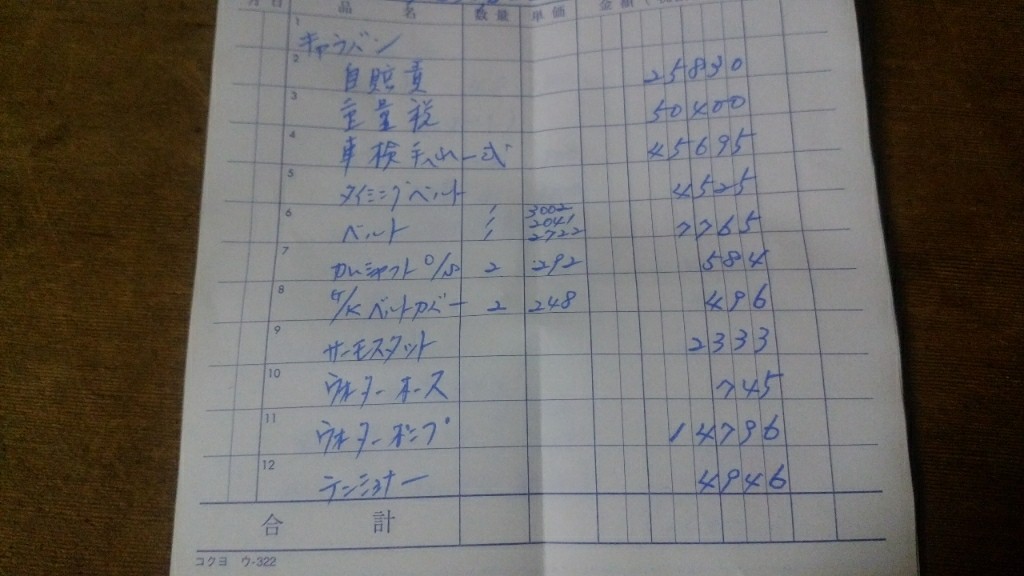 月 日 品 名 数量 単価 金額
1 キャラバン
2 自賠責 25830
3 重量税 50400
4 車検 一式 45695
5 タイミングベルト 4525
1 3002
6 ベルト 1 2041 7765
1 2722
7 カムシャフトO/S 2 292 584
8 G/Kベルトカバー 2 248 496
9 サーモスタット 2333
10 ウォーターホース 745
11 ウォーターポンプ 14796
12 テンショナー 4946
合 計
コクヨ ウ-322